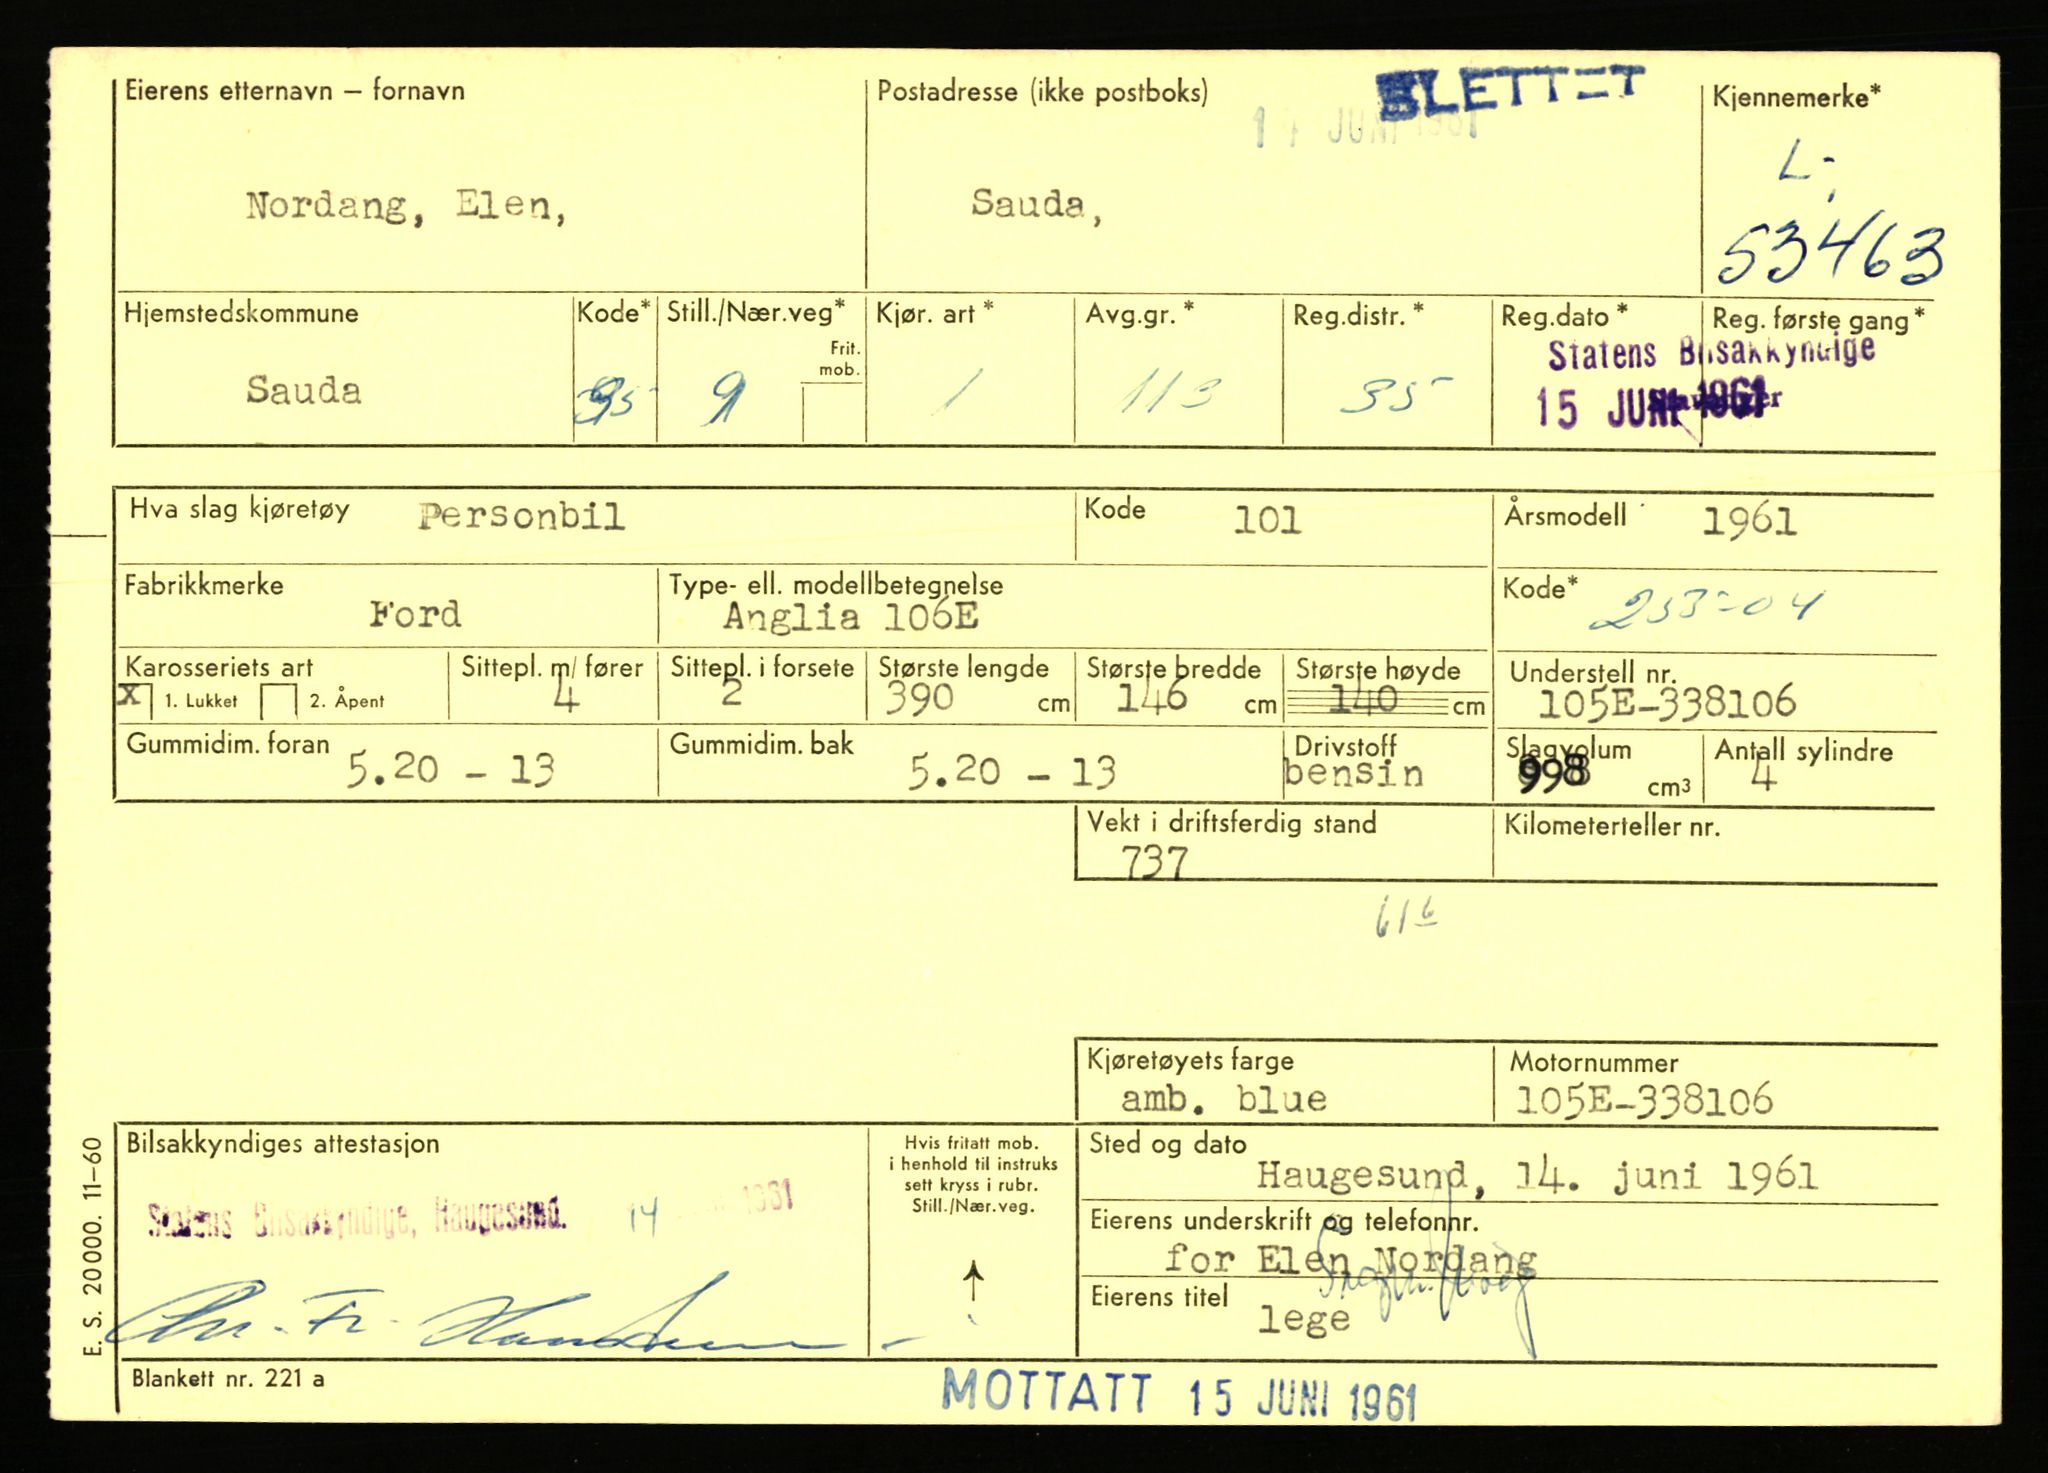 Eierens etternavn – fornavn
Postadresse (ikke postboks)
SLETTET
Kjennemerke*
JUNI 1961
L-
Nordang, Elen,
Sauda,
53463
Hjemstedskommune
Kode*
Still./Nær.veg*
Kjør. art *
Avg.gr. *
Reg.distr. *
Reg.dato *
Reg. første gang *
Frit. mob.
Statens Bilsakkyndige
Sauda
35
9
1
113
35
15 JUNI 1961
Hva slag kjøretøy Personbil
Kode 101
Årsmodell 1961
Fabrikkmerke
Type- ell. modellbetegnelse
Kode*
Ford
Anglia 106E
253-04
Karosseriets art
Sittepl. m/ fører
Sittepl. i forsete
Største lengde
Største bredde
Største høyde
Understell nr.
x 1. Lukket 2. Åpent
4
2
390 cm
146 cm
140 cm
105E-338106
Gummidim. foran
Gummidim. bak
Drivstoff
Slagvolum
Antall sylindre
5.20 - 13
5.20 - 13
bensin
998 cm3
4
Vekt i driftsferdig stand
Kilometerteller nr.
737
61 6
Kjøretøyets farge
Motornummer
amb. blue
105E-338106
Bilsakkyndiges attestasjon
Hvis fritatt mob.
i henhold til instruks
sett kryss i rubr.
Still./Nær.veg.
Sted og dato
Haugesund, 14. juni 1961
Statens Bilsakkyndige, Haugesund. 14 1961
Eierens underskrift og telefonnr.
for Elen Nordang
Eierens titel
lege
E. S. 20000. 11–60
Blankett nr. 221 a
MOTTATT 15 JUNI 1961